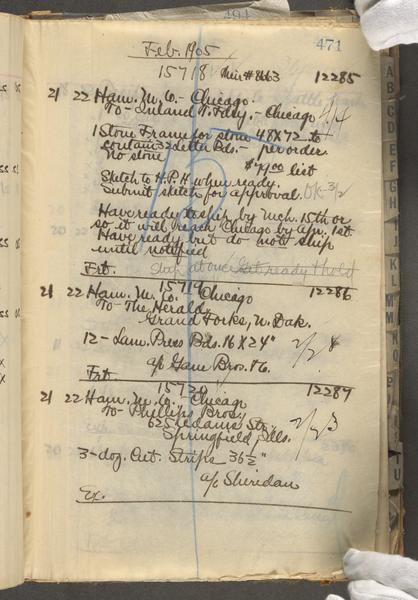 471
Feb. 1905
15718 Mis # 8663 12285
21 22 Ham. M. Co. - Chicago.
To- Inland T. Fdry. - Chicago
1 Stone Frame for stone 48 x 72 to
contain 32 Letter Bds. - per order.
No stone
$49.00 list
Sketch to H.P.H when ready.
Submit sketch for approval. OK-3/2
Have ready to ship by Mch. 15th or
so it will reach Chicago by Apr. 1st
Have ready but do not ship
until notified
Frt. Ship at once Get ready & hold
15719 12286
21 22 Ham. M. Co. Chicago
To- The Herald,
Grand Forks, N. Dak.
12- Lam. Press Bds. 16 x 24"
a/c Gane Bros. & Co.
Frt.
15720 12287
21 22 Ham. M. Co. - Chicago
To- Phillips Bros.,
Adams Str.,
Springfield, Ills.
2/23
3- doz. Cut. Strips 36 1/2"
a/c Sheridan
Ex.
A
B
C
D
E
F
G
H
I
J
K
L
M
N
O
P